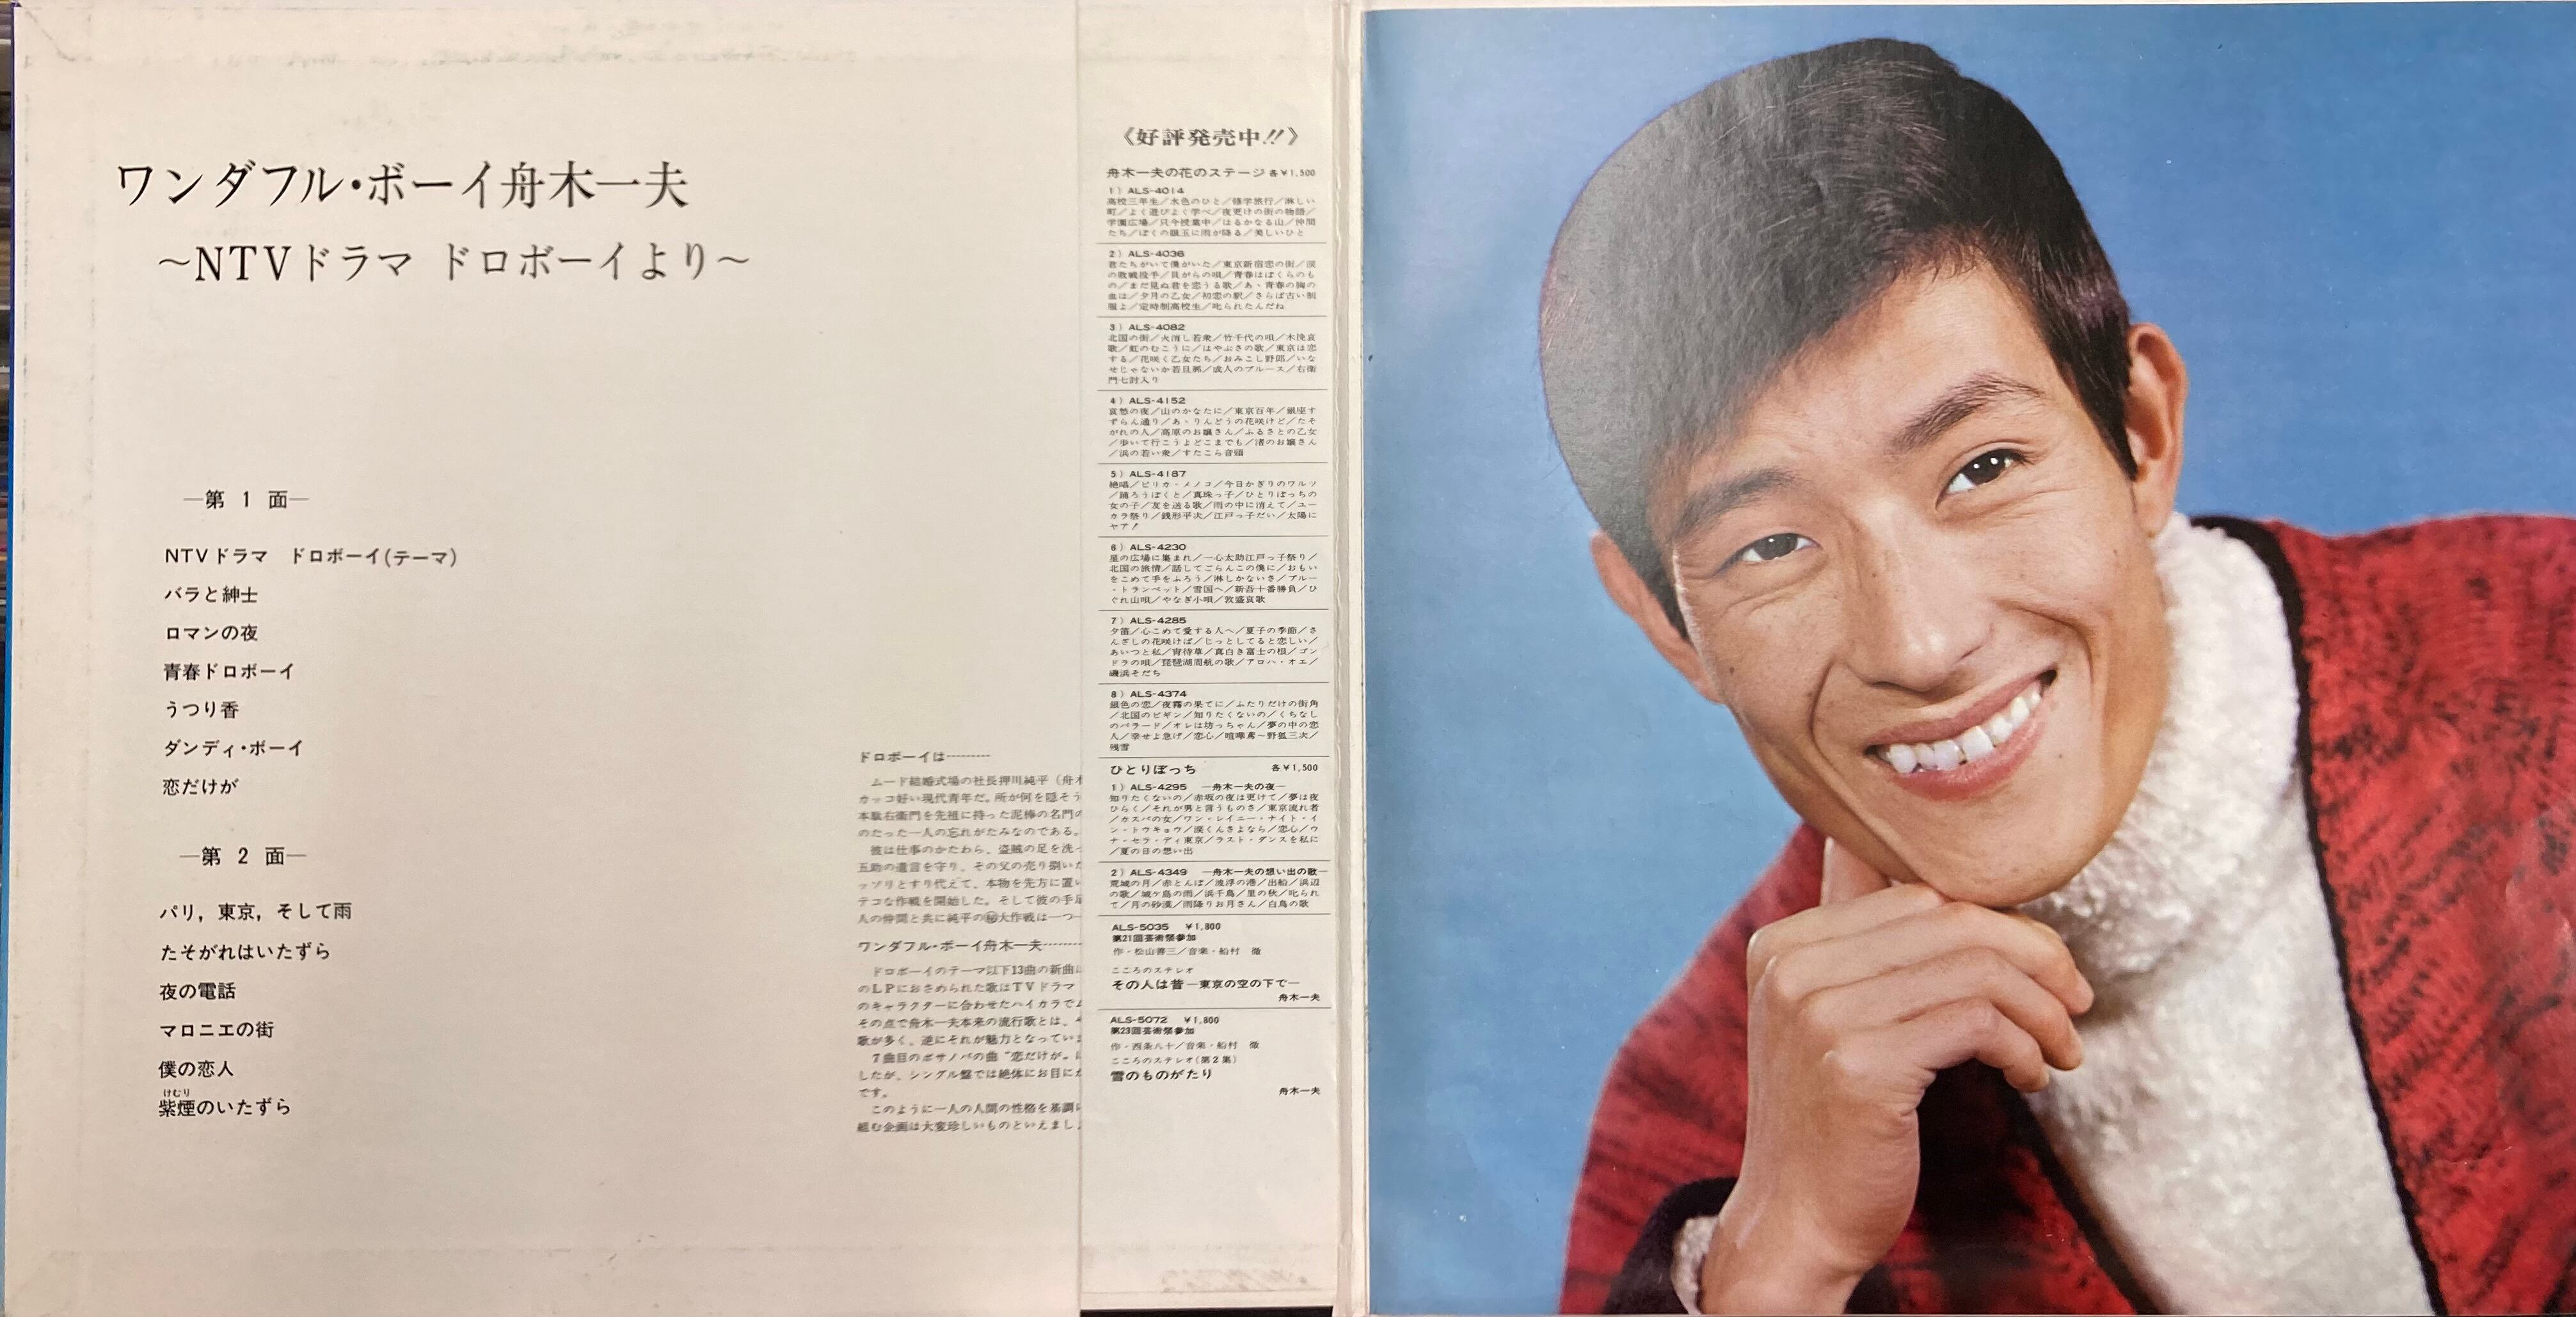 ワンダフル・ボーイ舟木一夫
～NTVドラマ ドロボーイより～
―第 1 面―
NTVドラマ ドロボーイ(テーマ)
バラと紳士
ロマンの夜
青春ドロボーイ
うつり香
ダンディ・ボーイ
恋だけが
―第 2 面―
パリ，東京，そして雨
たそがれはいたずら
夜の電話
マロニエの街
僕の恋人
けむり
紫煙のいたずら
ドロボーイは………
ムード結婚式場の社長押川純平（舟木
カッコ好い現代青年だ。所が何を隠そう
本駄右衛門を先祖に持った泥棒の名門の
のたった一人の忘れがたみなのである。
彼は仕事のかたわら、盗賊の足を洗っ
五助の遺言を守り、その父の売り捌いた
ッソリとすり代えて、本物を先方に置い
テコな作戦を開始した。そして彼の手足
人の仲間と共に純平の㊙大作戦は一つ一
ワンダフル・ボーイ舟木一夫………
ドロボーイのテーマ以下13曲の新曲は
のLPにおさめられた歌はTVドラマ
のキャラクターに合わせたハイカラでム
その点で舟木一夫本来の流行歌とは、
歌が多く、逆にそれが魅力となっていま
7曲目のボサノバの曲“恋だけが„は
したが、シングル盤では絶体にお目にか
です。
このように一人の人間の性格を基調に
組む企画は大変珍しいものといえまし
《好評発売中!!》
舟木一夫の花のステージ 各￥1,500
1）ALS-4014
高校三年生／水色のひと／修学旅行／淋しい
町／よく遊びよく学べ／夜更けの街の物語／
学園広場／只今授業中／はるかなる山／仲間
たち／ぼくの眼玉に雨が降る／美しいひと
2）ALS-4036
君たちがいて僕がいた／東京新宿恋の街／涙
の敗戦投手／貝がらの唄／青春はぼくらのも
の／まだ見ぬ君を恋うる歌／あゝ青春の胸の
血は／夕月の乙女／初恋の駅／さらば古い制
服よ／定時制高校生／叱られたんだね
3）ALS-4082
北国の街／火消し若衆／竹千代の唄／木挽哀
歌／虹のむこうに／はやぶさの歌／東京は恋
する／花咲く乙女たち／おみこし野郎／いな
せじゃないか若旦那／成人のブルース／右衛
門七討入り
4）ALS-4152
哀愁の夜／山のかなたに／東京百年／銀座す
ずらん通り／あゝりんどうの花咲けど／たそ
がれの人／高原のお嬢さん／ふるさとの乙女
／歩いて行こうよどこまでも／渚のお嬢さん
／浜の若い衆／すたこら音頭
5）ALS-4187
絶唱／ピリカ・メノコ／今日かぎりのワルツ
／踊ろうぼくと／真珠っ子／ひとりぼっちの
女の子／友を送る歌／雨の中に消えて／ユー
カラ祭り／銭形平次／江戸っ子だい／太陽に
ヤア！
6）ALS-4230
星の広場に集まれ／一心太助江戸っ子祭り／
北国の旅情／話してごらんこの僕に／おもい
をこめて手をふろう／淋しかないさ／ブルー
・トランペット／雪国へ／新吾十番勝負／ひ
ぐれ山唄／やなぎ小唄／敦盛哀歌
7）ALS-4285
夕笛／心こめて愛する人へ／夏子の季節／さ
んざしの花咲けば／じっとしてると恋しい／
あいつと私／宵待草／真白き富士の根／ゴン
ドラの唄／琵琶湖周航の歌／アロハ・オエ／
磯浜そだち
8）ALS-4374
銀色の恋／夜霧の果てに／ふたりだけの街角
／北国のビギン／知りたくないの／くちなし
のバラード／オレは坊っちゃん／夢の中の恋
人／幸せよ急げ／恋心／喧嘩鳶～野狐三次／
残雪
ひとりぼっち 各￥1,500
1）ALS-4295 ―舟木一夫の夜―
知りたくないの／赤坂の夜は更けて／夢は夜
ひらく／それが男と言うものさ／東京流れ者
／カスバの女／ワン・レイニー・ナイト・イ
ン・トウキョウ／涙くんさよなら／恋心／ウ
ナ・セラ・ディ東京／ラスト・ダンスを私に
／夏の日の想い出
2）ALS-4349 ―舟木一夫の想い出の歌―
荒城の月／赤とんぼ／波浮の港／出船／浜辺
の歌／城ケ島の雨／浜千鳥／里の秋／叱られ
て／月の砂漠／雨降りお月さん／白鳥の歌
ALS-5035 ￥1,800
第21回芸術祭参加
作・松山善三／音楽・船村 徹
こころのステレオ
その人は昔―東京の空の下で―
舟木一夫
ALS-5072 ￥1,800
第23回芸術祭参加
作・西条八十／音楽・船村 徹
こころのステレオ(第2集)
雪のものがたり
舟木一夫